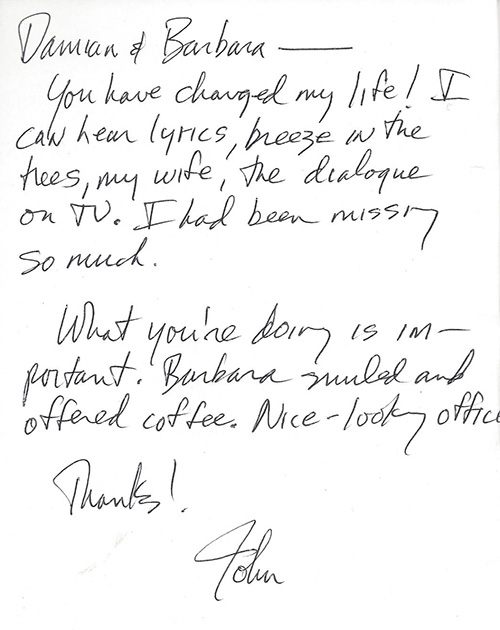 Damian & Barbara —
You have changed my life! I
can hear lyrics, breeze in the
trees, my wife, the dialogue
on TV. I had been missing
so much.
What you're doing is im-
portant. Barbara smiled and
offered coffee. Nice-looking office
Thanks!
John